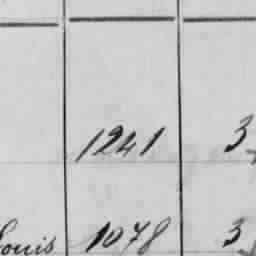 1241 3
Louis 1078 3